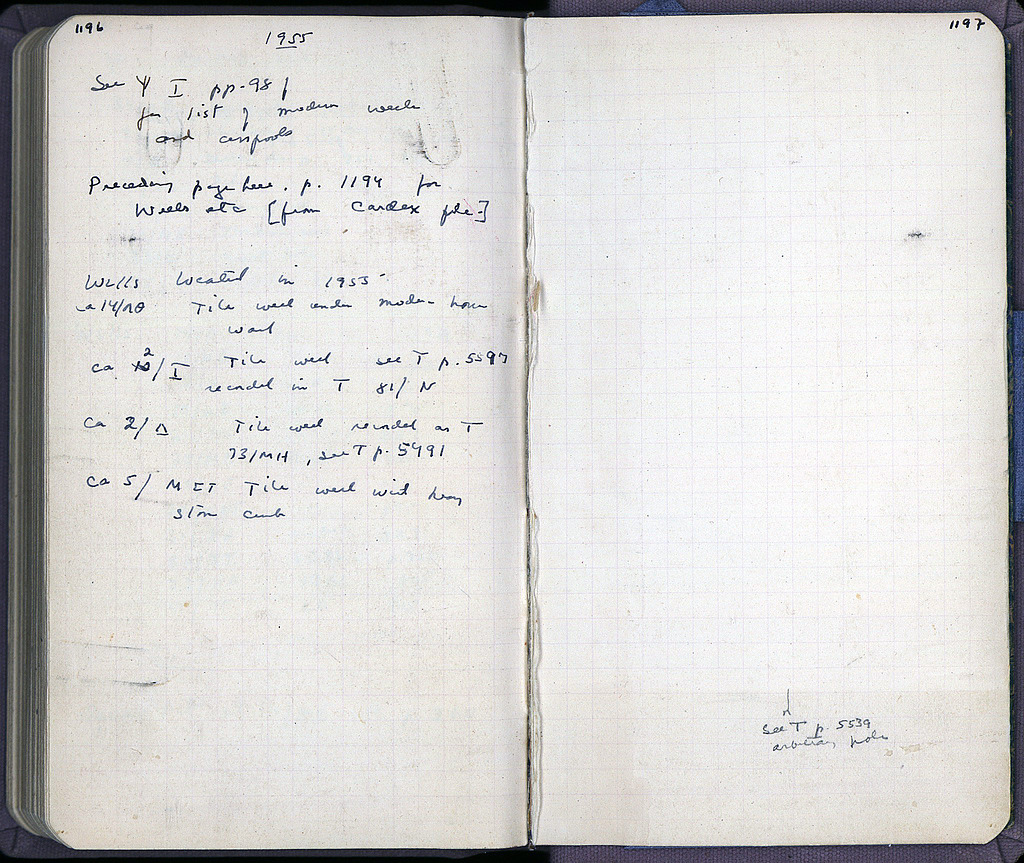 1196
1955
See Ψ I pp. 98 f
for list of modern wells
and cesspools
Preceding page here. p. 1194 for
Wells etc [from Cardex file.]
Wells located in 1955
ca 14/ΛΘ Tile well under modern house
wall
ca 2/I Tile well see T p. 5597
recorded in T 81/N
ca 2/Δ Tile well recorded as T
73/MH, see T p. 5491
ca 5/ MET Tile well with heavy
stone curb
1197
see T p. 5539